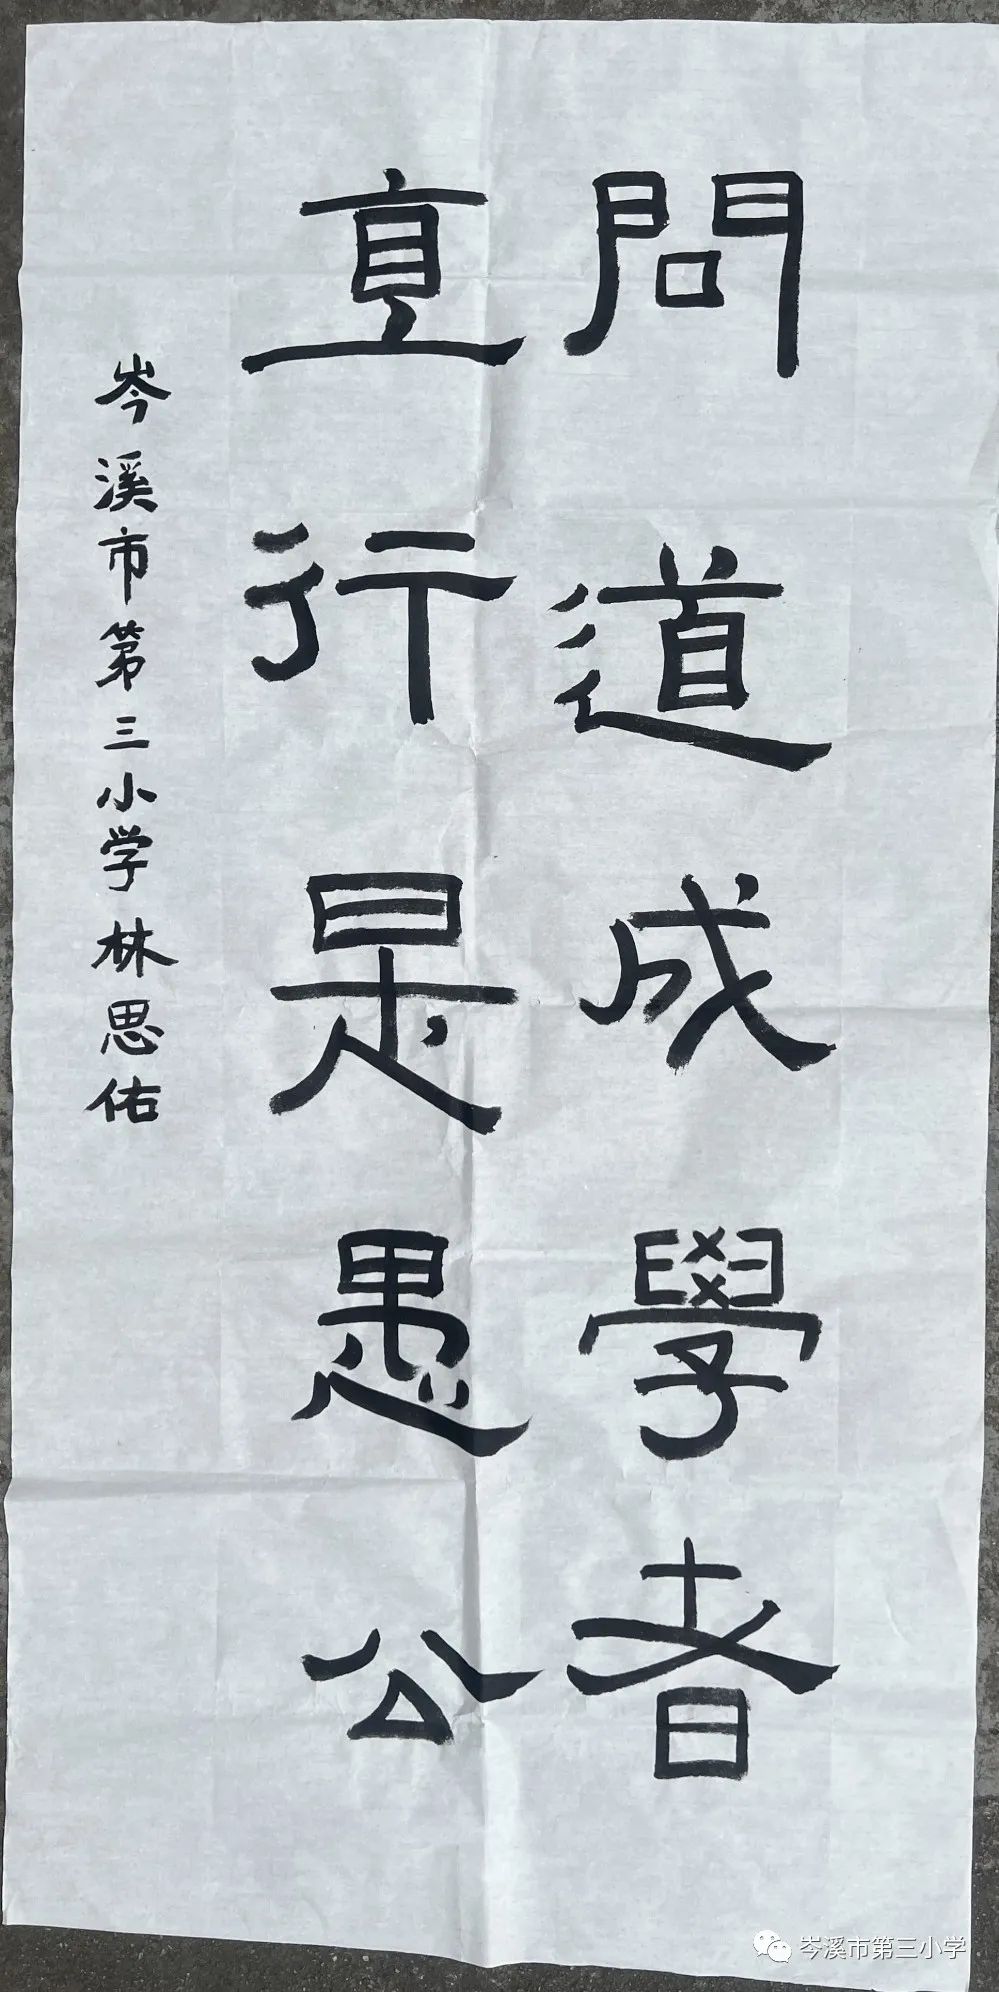 問道成學者
直行是愚公
岑溪市第三小学林思佑
岑溪市第三小学